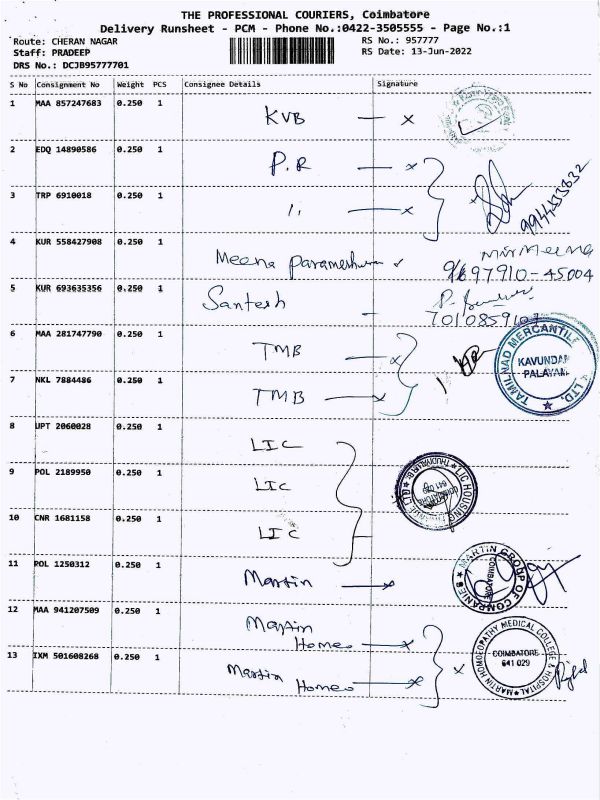 THE PROFESSIONAL COURIERS, Coimbatore
Delivery Runsheet - PCM - Phone No.:0422-3505555 - Page No.:1
Route: CHERAN NAGAR RS No.: 957777
Staff: PRADEEP RS Date: 13-Jun-2022
DRS No.: DCJB95777701
S No Consignment No Weight PCS Consignee Details Signature
1 MAA 857247683 0.250 1 KVB
2 EDQ 14890586 0.250 1 P.R
3 TRP 6910018 0.250 1 ,, 9944533632
4 KUR 558427908 0.250 1 Meena Parameshwara Meena
97910-45004
5 KUR 693635356 0.250 1 Santesh
6 MAA 281747790 0.250 1 TMB
TAMILNAD MERCANTILE LTD.
KAVUNDAM
PALAYAM
7 NKL 7884486 0.250 1 TMB
8 UPT 2060028 0.250 1 LIC
9 POL 2189950 0.250 1 LIC
LIC HOUSING
641 029
10 CNR 1681158 0.250 1 LIC
11 POL 1250312 0.250 1 Martin
MARTIN GROUP OF COMPANIES
COIMBATORE
12 MAA 941207509 0.250 1 Martin
Homeo
13 IXM 501608268 0.250 1 Martin
Homeo
MARTIN HOMOEOPATHY MEDICAL COLLEGE & HOSPITAL
COIMBATORE
641 029